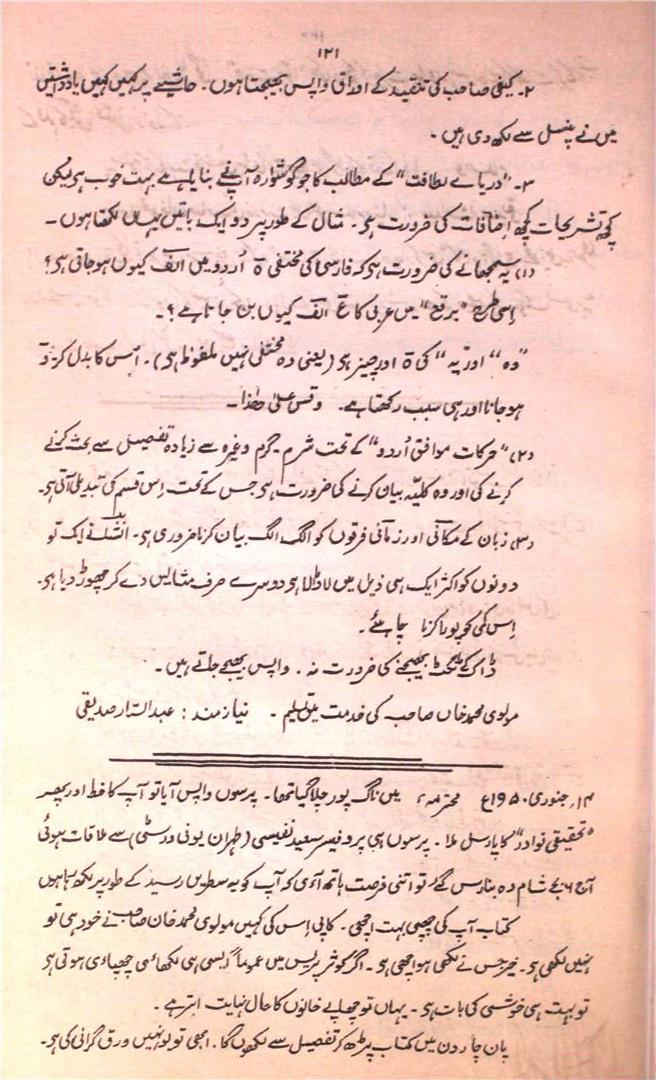 ۱۲۱
۲۔ کیفی صاحب کی تنقید کے اوراق واپس بھیجتا ہوں۔ حاشیے پر کہیں کہیں یادداشتیں
میں نے پنسل سے لکھ دی ہیں۔
۳۔ "دریاے لطافت" کے مطالب کا جو گوشوارہ آپ نے بنایا ہے بہت خوب ہی لیکن
کچھ تشریحات کچھ اضافات کی ضرورت ہی۔ مثال کے طور پر دو ایک باتیں یہاں لکھتا ہوں۔
(۱) یہ سمجھانے کی ضرورت ہی کہ فارسی کی مختفی ہ اُردو میں الف کیوں ہو جاتی ہی؟
اِسی طرح "برقع" میں عربی کا ع الف کیوں بنا جاتا ہے؟۔
"وہ" اور "یہ" کی ہ اور چیز ہی (یعنی وہ مختفی نہیں ملفوظ ہی)۔ اُس کا بدل کر وَ
ہو جانا اور ہی سبب رکھتا ہے۔ وقس علیٰ ھٰذا۔
(۲) "حرکات موافق اُردو" کے تحت شرم۔ گرم وغیرہ سے زیادہ تفصیل سے بحث کرنے
کرنے کی اور وہ کلیّہ بیان کرنے کی ضرورت ہی جس کے تحت اِس قسم کی تبدیلی آتی ہی۔
(۳) زبان کے مکانی اور زمانی فرقوں کو الگ الگ بیان کرنا ضروری ہی۔ انشا نے ایک تو
دونوں کو اکثر ایک ہی ذیل میں لا ڈالا ہی دوسرے صرف مثالیں دے کر چھوڑ دیا ہی۔
اِس کمی کو پورا کرنا چاہئے۔
ڈاک کے ٹکٹ بھیجنے کی ضرورت نہ۔ واپس بھیجے جاتے ہیں۔
مولوی محمد خاں صاحب کی خدمت میں تسلیم۔ نیازمند: عبدالستار صدیقی
۱۴؍ جنوری ۱۹۵۰ع محترمہ، میں ناگ پور چلا گیا تھا۔ پرسوں واپس آیا تو آپ کا خط اور پھر
"تحقیقی نوادر" کا پارسل ملا۔ پرسوں ہی پروفیسر سعید نفیسی (طہران یونی ورسٹی) سے ملاقات ہوئی
آج ۶ بجے شام وہ بنارس گئے تو اتنی فرصت ہاتھ آئی کہ آپ کو یہ سطریں رسید کے طور پر لکھ رہا ہوں
کتاب آپ کی چھپی بہت اچھی۔ کاپی اِس کی کہیں مولوی محمد خان صاحب نے خود ہی تو
نہیں لکھی ہی۔ خیر جس نے لکھی ہو اچھی ہی۔ اگر کوثر پریس میں عموماً ایسی ہی لکھائی چھپائی ہوتی ہی
تو بہت ہی خوشی کی بات ہی۔ یہاں تو چھاپے خانوں کا حال نہایت ابتر ہے۔
پان چار دن میں کتاب پڑھ کر تفصیل سے لکھوں گا۔ ابھی تو یوں ہیں ورق گرانی کی ہی۔